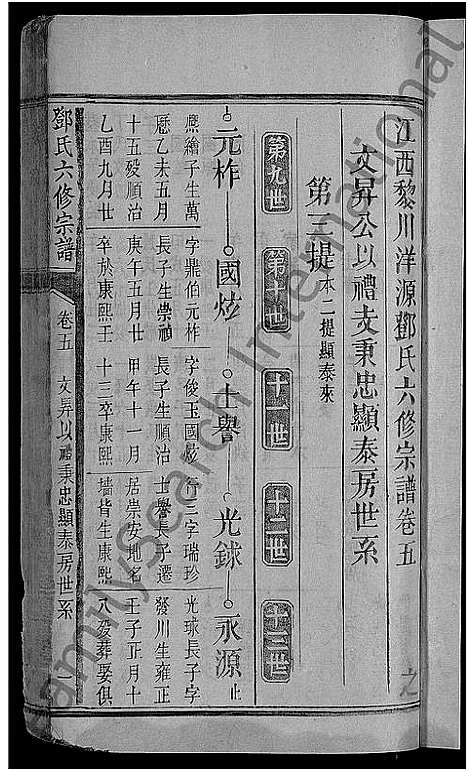 江西黎川洋源鄧氏六修宗譜卷五
文昇公以禮支秉忠顯泰房世系
第三提本二提顯泰來
第九世
第十世
十一世
十二世
十三世
元柞
國炫
士譽
光銶
永源 止
應繪子生萬
曆乙未五月
十五歿順治
乙酉九月廿
字鼎伯元柞
長子生崇禎
庚午五月廿
卒於康熙壬
字俊玉國炫
長子生順治
甲午十一月
十三卒康熙
行三字瑞珍
士譽長子遷
居崇安地名
墻皆生康熙
光球長子字
發川生雍正
壬子正月十
八歿葬娶俱
鄧氏六修宗譜
卷五
文昇以禮秉忠顯泰房世系
一
FamilySearch International